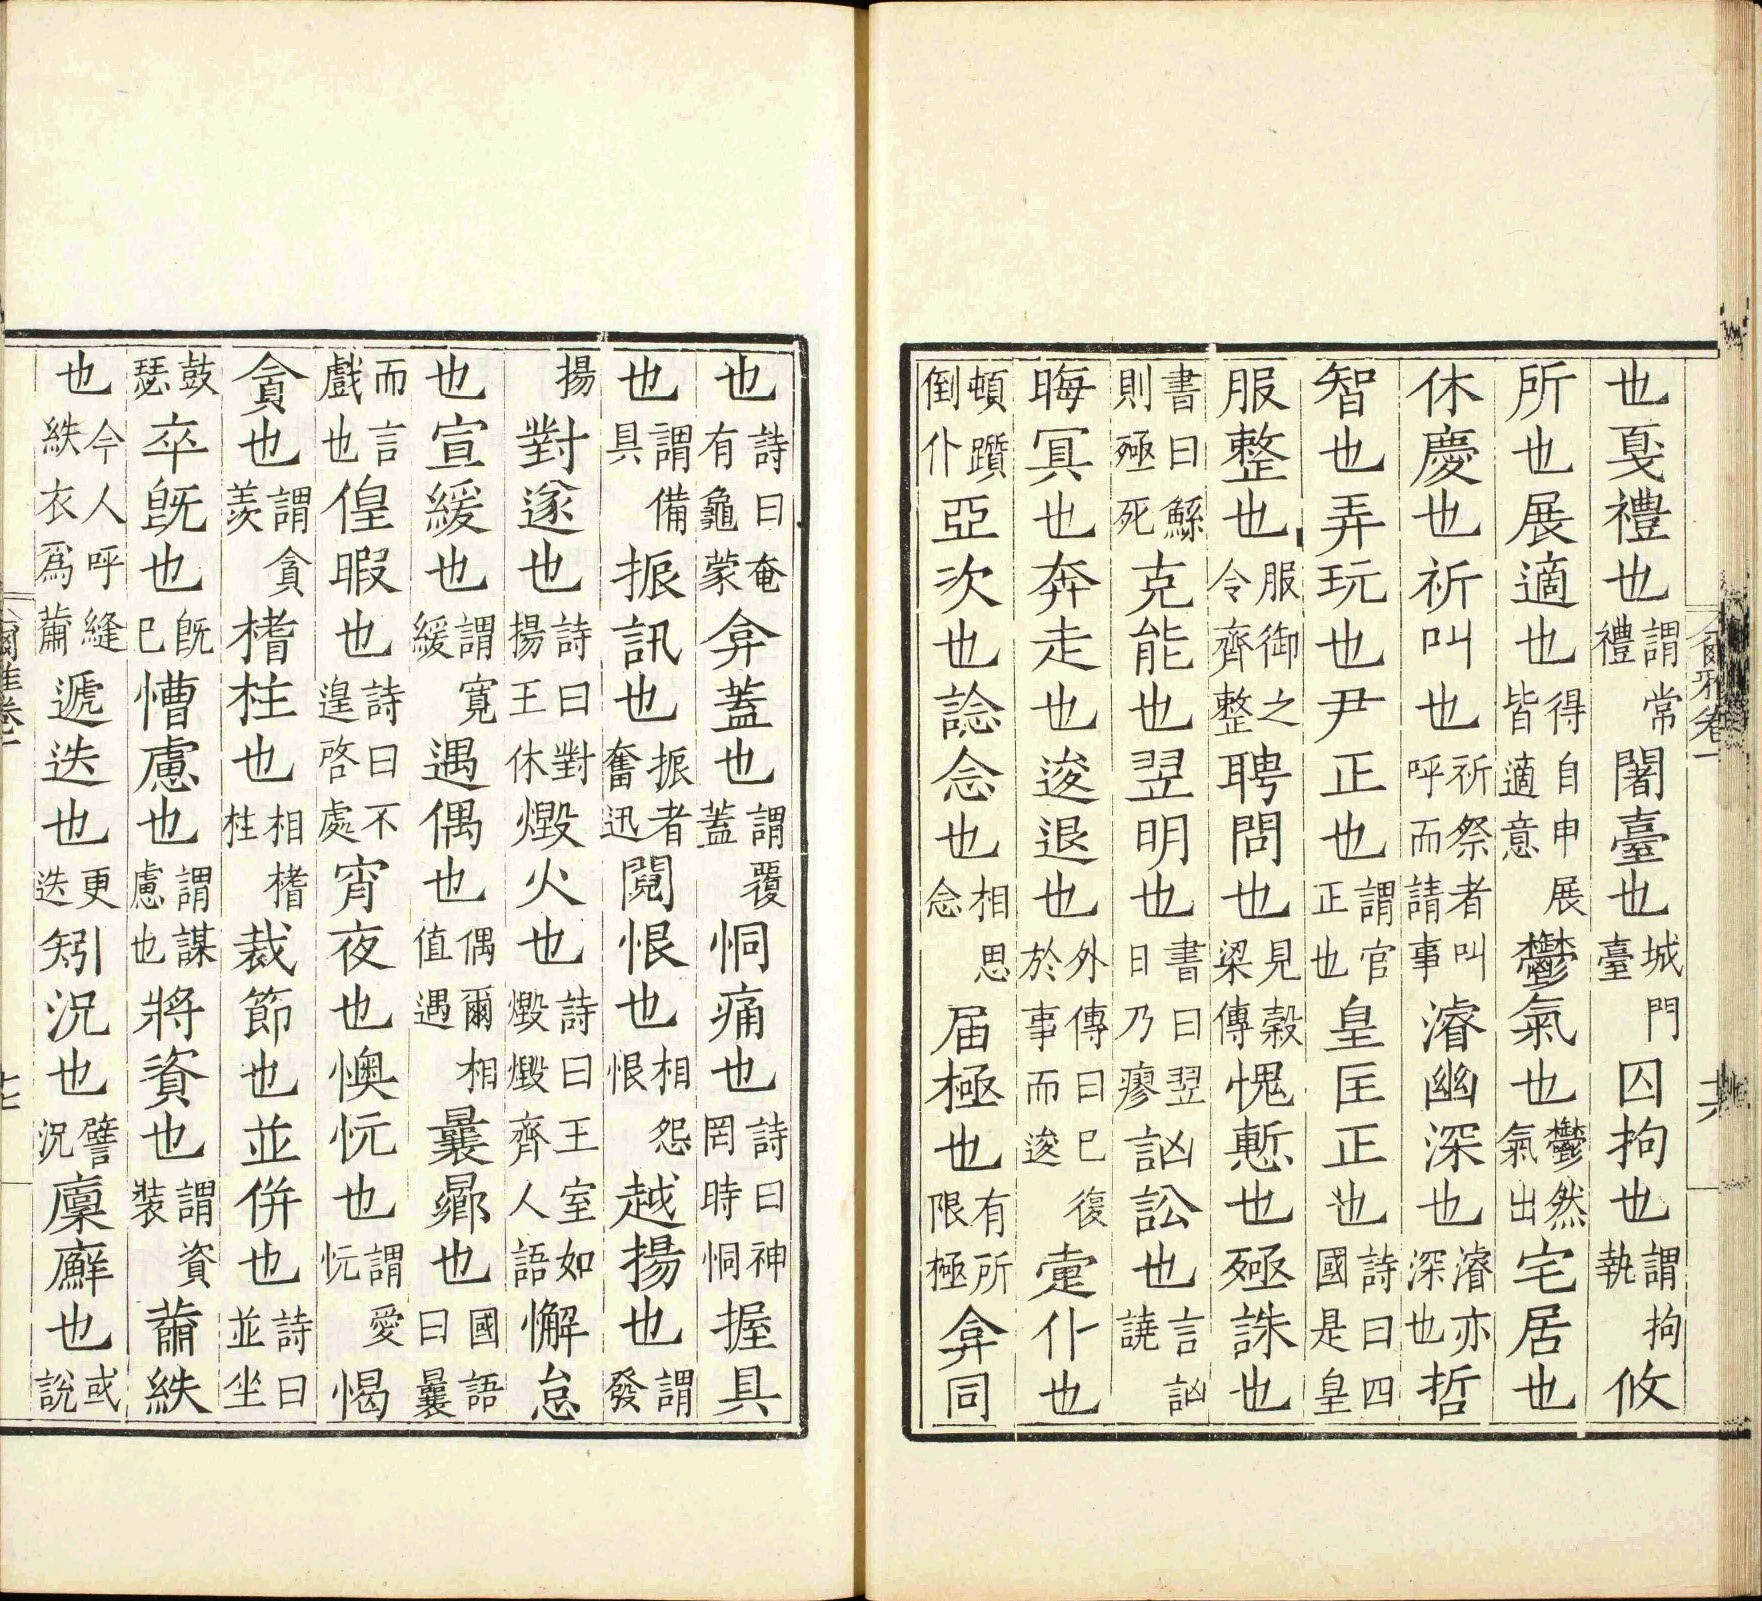 爾雅卷一
十六
也戛禮也謂常禮闍臺也城門臺囚拘也謂拘執攸
所也展適也得自申展皆適意鬱氣也鬱然氣出宅居也
休慶也祈叫也祈祭者叫呼而請事濬幽深也濬亦深也哲
智也弄玩也尹正也謂官正也皇匡正也詩曰四國是皇
服整也服御之令齊整聘問也見穀梁傳愧慙也殛誅也
書曰鯀則殛死克能也翌明也書曰翌日乃瘳訩訟也言訩譊
晦冥也奔走也逡退也外傳曰已復於事而逡疐仆也
頓躓倒仆亞次也諗念也相思念屆極也有所限極弇同
也詩曰奄有龜蒙弇蓋也謂覆蓋恫痛也詩曰神罔時恫握具
也謂備具振訊也振者奮迅鬩恨也相怨恨越揚也謂發
揚對遂也詩曰對揚王休燬火也詩曰王室如燬燬齊人語懈怠
也宣緩也謂寬緩遇偶也偶爾相值遇曩曏也國語曰曩
而言戲也偟暇也詩曰不遑啓處宵夜也懊忨也謂愛忨愒
貪也謂貪羨榰柱也相榰柱裁節也並併也詩曰並坐
鼓瑟卒既也既已慒慮也謂謀慮也將資也謂資裝黹紩
也今人呼縫紩衣爲黹遞迭也更迭矧況也譬況廩廯也或說
爾雅卷一
十七